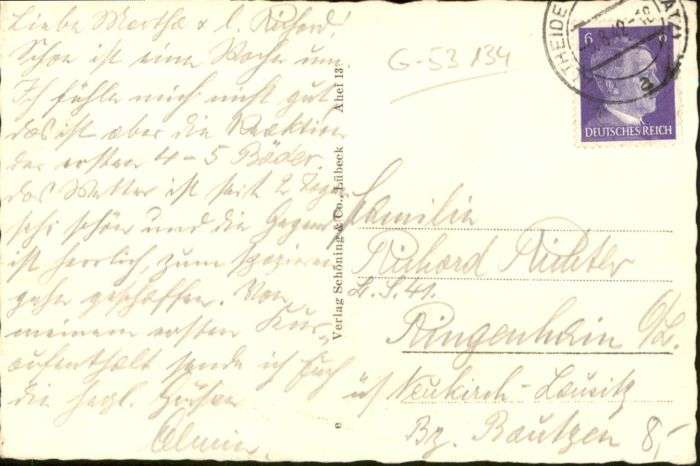 Liebe Martha & l. Richard!
Schon ist eine Woche um.
Ich fühle mich nicht gut,
das ist aber die Reaktion
der ersten 4-5 Bäder.
das Wetter ist seit 2 Tagen
sehr schön und die Gegend
ist herrlich, zum spazieren
gehn geschaffen. Von
meinem ersten Kur-
aufenthalt sende ich Euch
die herzl. Grüße
G-53 134
6 6
DEUTSCHES REICH
Verlag Schöning & Co., Lübeck
Ahef 13
Familie
Richard Richter
Ringenhain
üb/ Neukirch-Lausitz
Bz. Bautzen
8,-